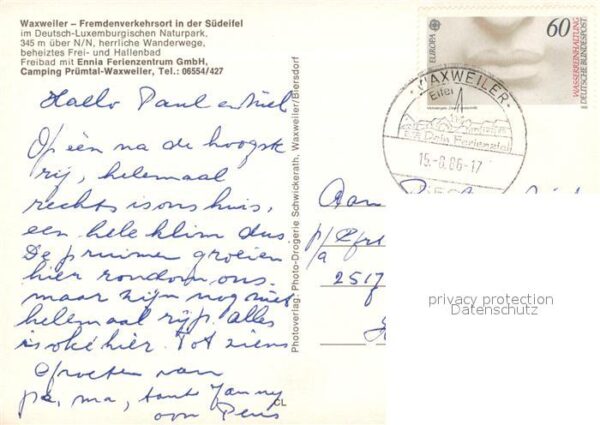 Waxweiler – Fremdenverkehrsort in der Südeifel
im Deutsch-Luxemburgischen Naturpark,
345 m über N/N, herrliche Wanderwege,
beheiztes Frei- und Hallenbad
Freibad mit Ennia Ferienzentrum GmbH,
Camping Prümtal-Waxweiler, Tel.: 06554/427
Hallo Paul en Niel
Op één na de hoogste
rij, helemaal
rechts is ons huis,
een hele klim dus
De pruimen groeien
hier rondom ons.
maar zijn nog niet
helemaal rijp. alles
is oké hier. Tot ziens
Groeten van
pa, ma, tante Fanny
oom
CL
Photoverlag: Photo-Drogerie Schwickerath, Waxweiler/Biersdorf
EUROPA
60
WASSERREINHALTUNG
DEUTSCHE BUNDESPOST
WAXWEILER
Eifel
Dein Ferienziel
15.-8.86-17
Aan
p/a
2517
privacy protection
Datenschutz